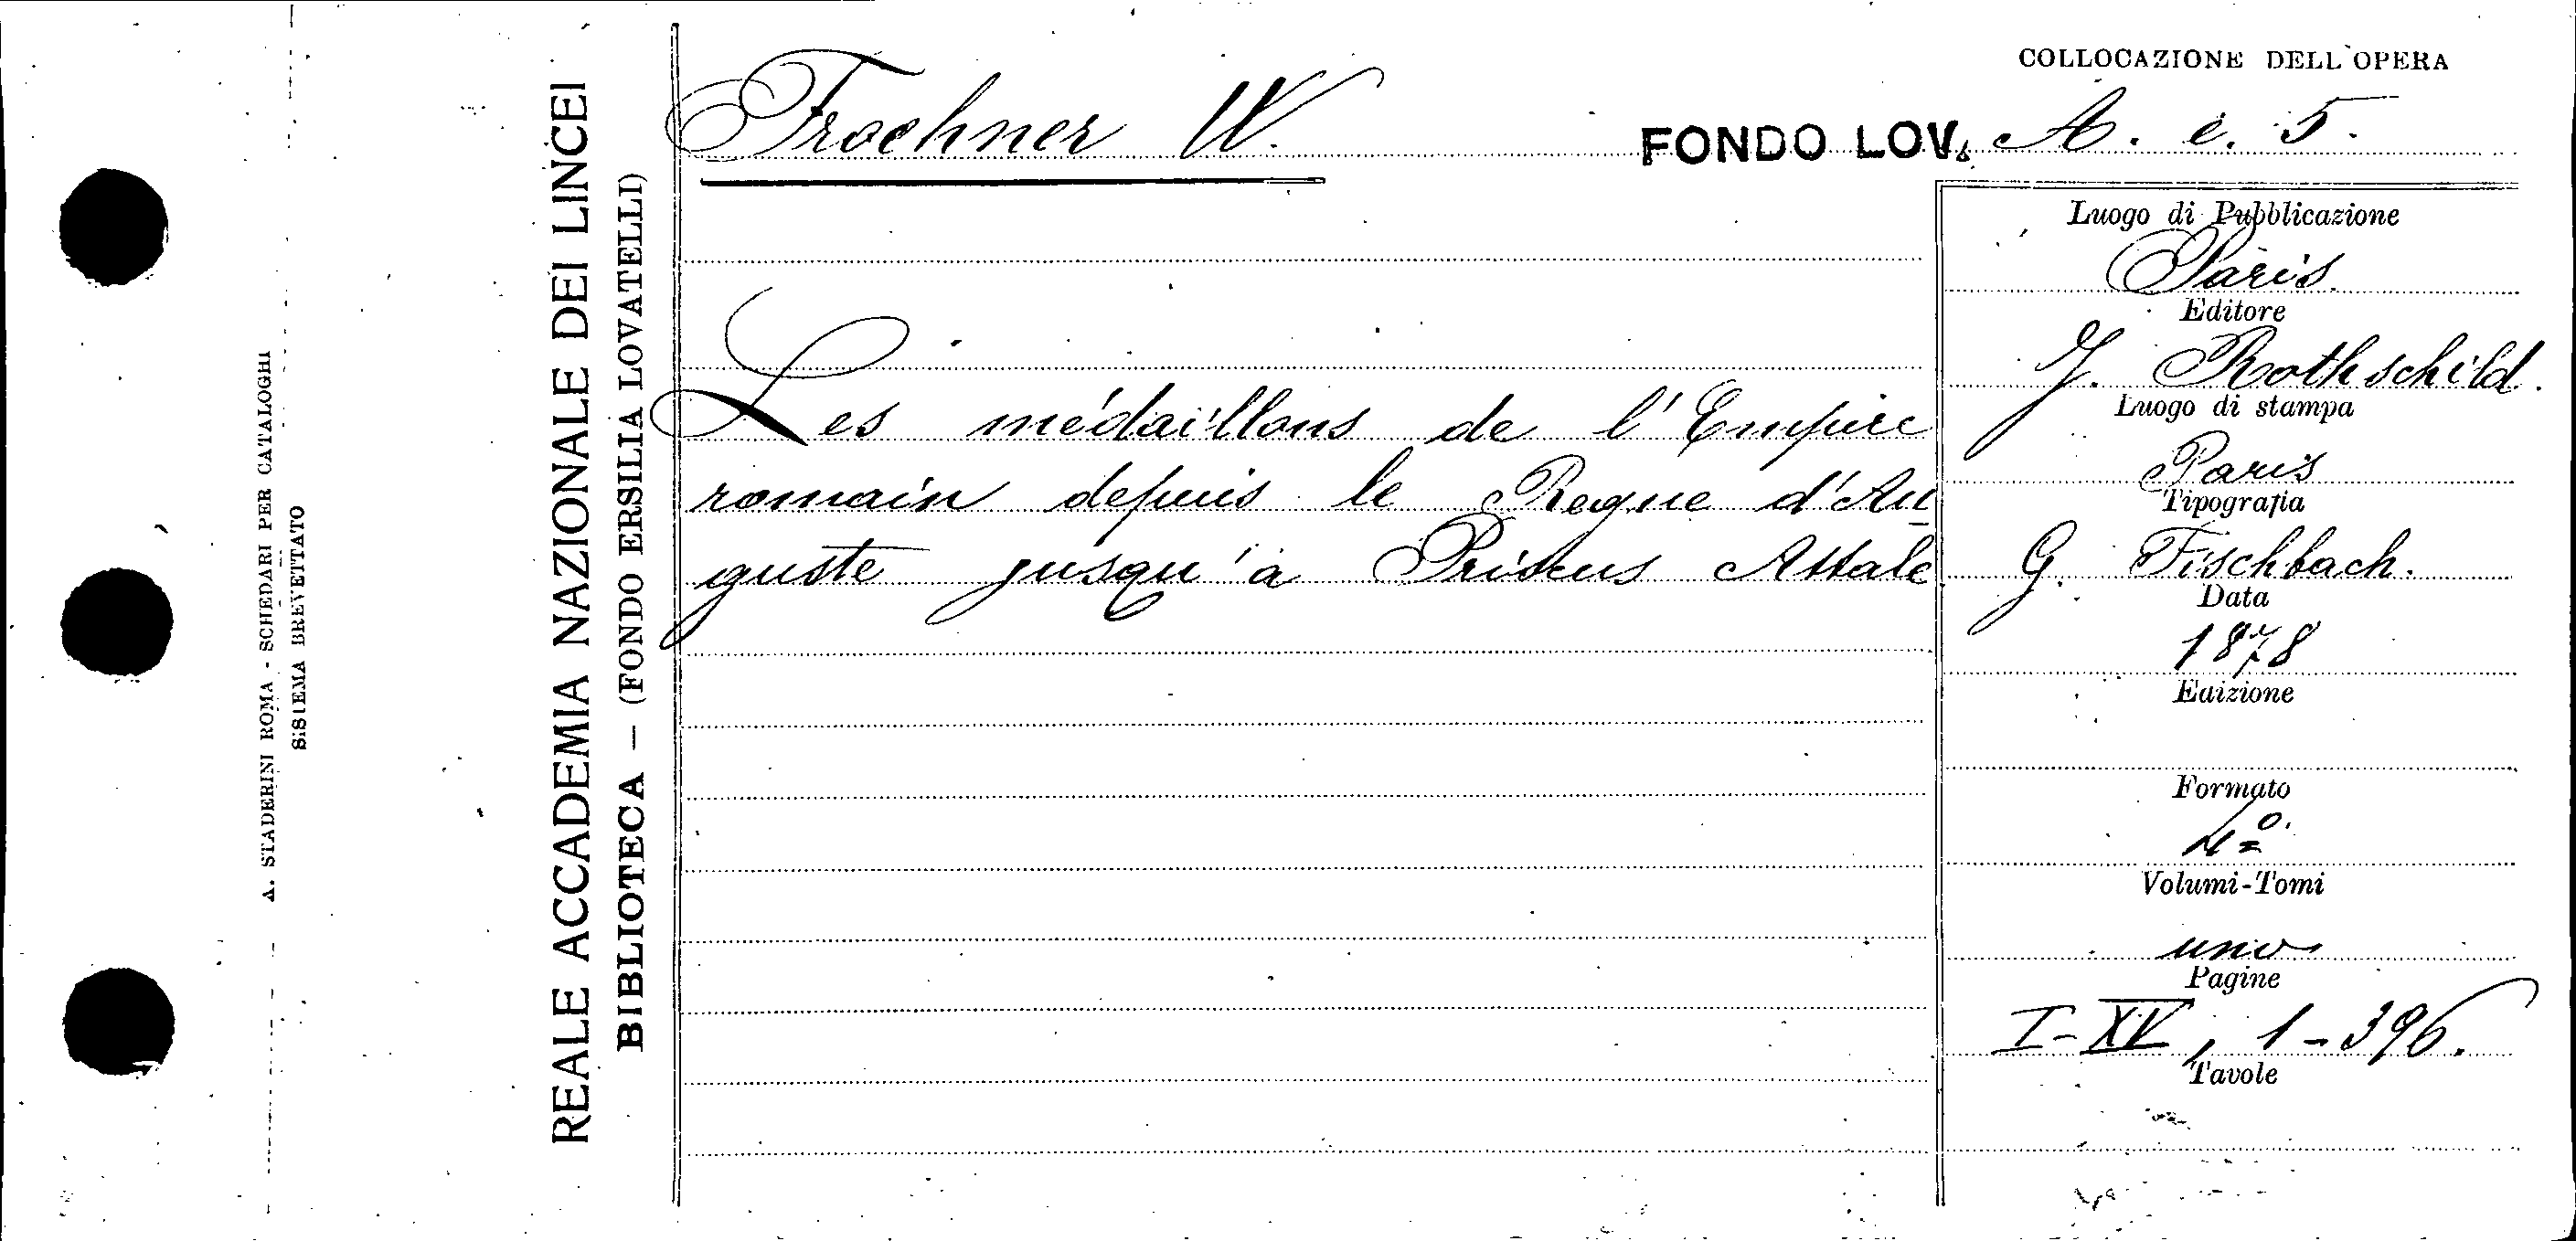 COLLOCAZIONE DELL'OPERA
Froehner W.
FONDO LOV. A. e. 5.
Les médaillons de l'Empire
romain depuis le Regne d'Au
guste jusqu'a Priscus Attale
Luogo di Pubblicazione
Paris.
Editore
J. Rothschild.
Luogo di stampa
Paris
Tipografia
G. Fischbach.
Data
1878
Edizione
Formato
4º
Volumi-Tomi
uno
Pagine
I-XV, 1-396.
Tavole
REALE ACCADEMIA NAZIONALE DEI LINCEI
BIBLIOTECA — (FONDO ERSILIA LOVATELLI)
A. STADERINI ROMA - SCHEDARI PER CATALOGHI
SISTEMA BREVETTATO